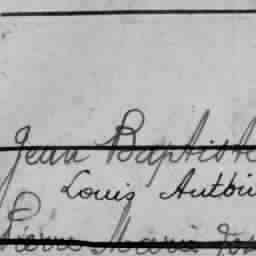 Jean Baptiste
Louis Antoi
Pierre Marie